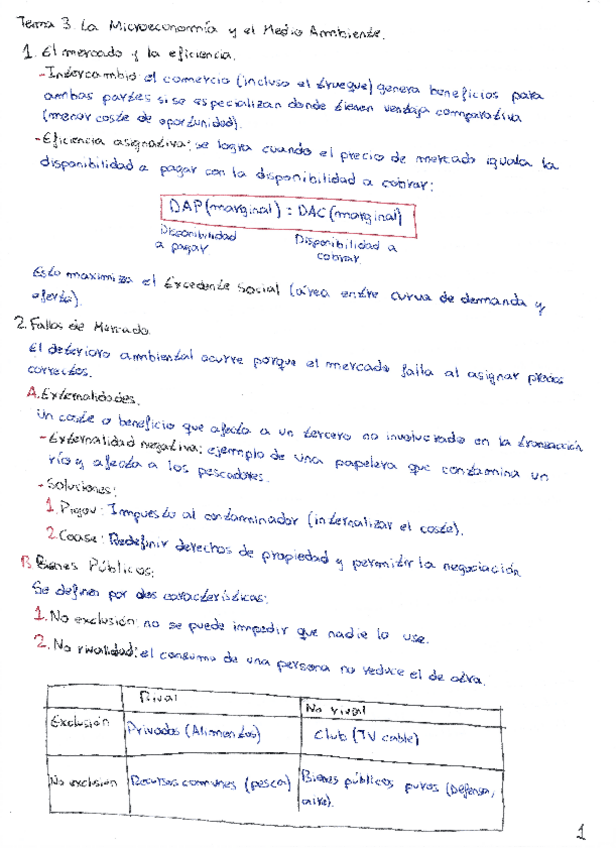 Tema 3. La Microeconomía y el Medio Ambiente.
1. El mercado y la eficiencia.
- Intercambio el comercio (incluso el trueque) genera beneficios para
ambas partes si se especializan donde tienen ventaja comparativa
(menor coste de oportunidad).
- Eficiencia asignativa: se logra cuando el precio de mercado iguala la
disponibilidad a pagar con la disponibilidad a cobrar:
DAP (marginal) = DAC (marginal)
Disponibilidad a pagar
Disponibilidad a cobrar
Esto maximiza el Excedente Social (área entre curva de demanda y
oferta).
2. Fallos de Mercado
El deterioro ambiental ocurre porque el mercado falla al asignar precios
correctos.
A. Externalidades.
Un coste o beneficio que afecta a un tercero no involucrado en la transacción
- Externalidad negativa: ejemplo de una papelera que contamina un
río y afecta a los pescadores.
- Soluciones:
1. Pigou: Impuesto al contaminador (internalizar el coste).
2. Coase: Redefinir derechos de propiedad y permitir la negociación
B. Bienes Públicos:
Se definen por dos características:
1. No exclusión: no se puede impedir que nadie lo use.
2. No rivalidad: el consumo de una persona no reduce el de otra.
Rival No rival
Exclusión Privados (Alimentos) Club (TV cable)
No exclusión Recursos comunes (pesca) Bienes públicos puros (Defensa,
aire).
1